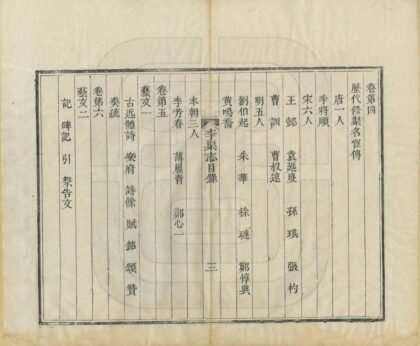 卷第四
歷代修渠名宦傳
唐一人
李將順
宋六人
王懿 袁延度 孫琪 張杓
曹訓 曹叔遠
明五人
劉伯起 朱華 徐璉 鄭惇典
黃鳴喬
李渠志目錄 三
本朝三人
李芳春 蔣履青 鄭心一
卷第五
藝文一
古近體詩 樂府 詩餘 賦 銘 頌 贊
奏疏
卷第六
藝文二
記 碑記 引 祭告文